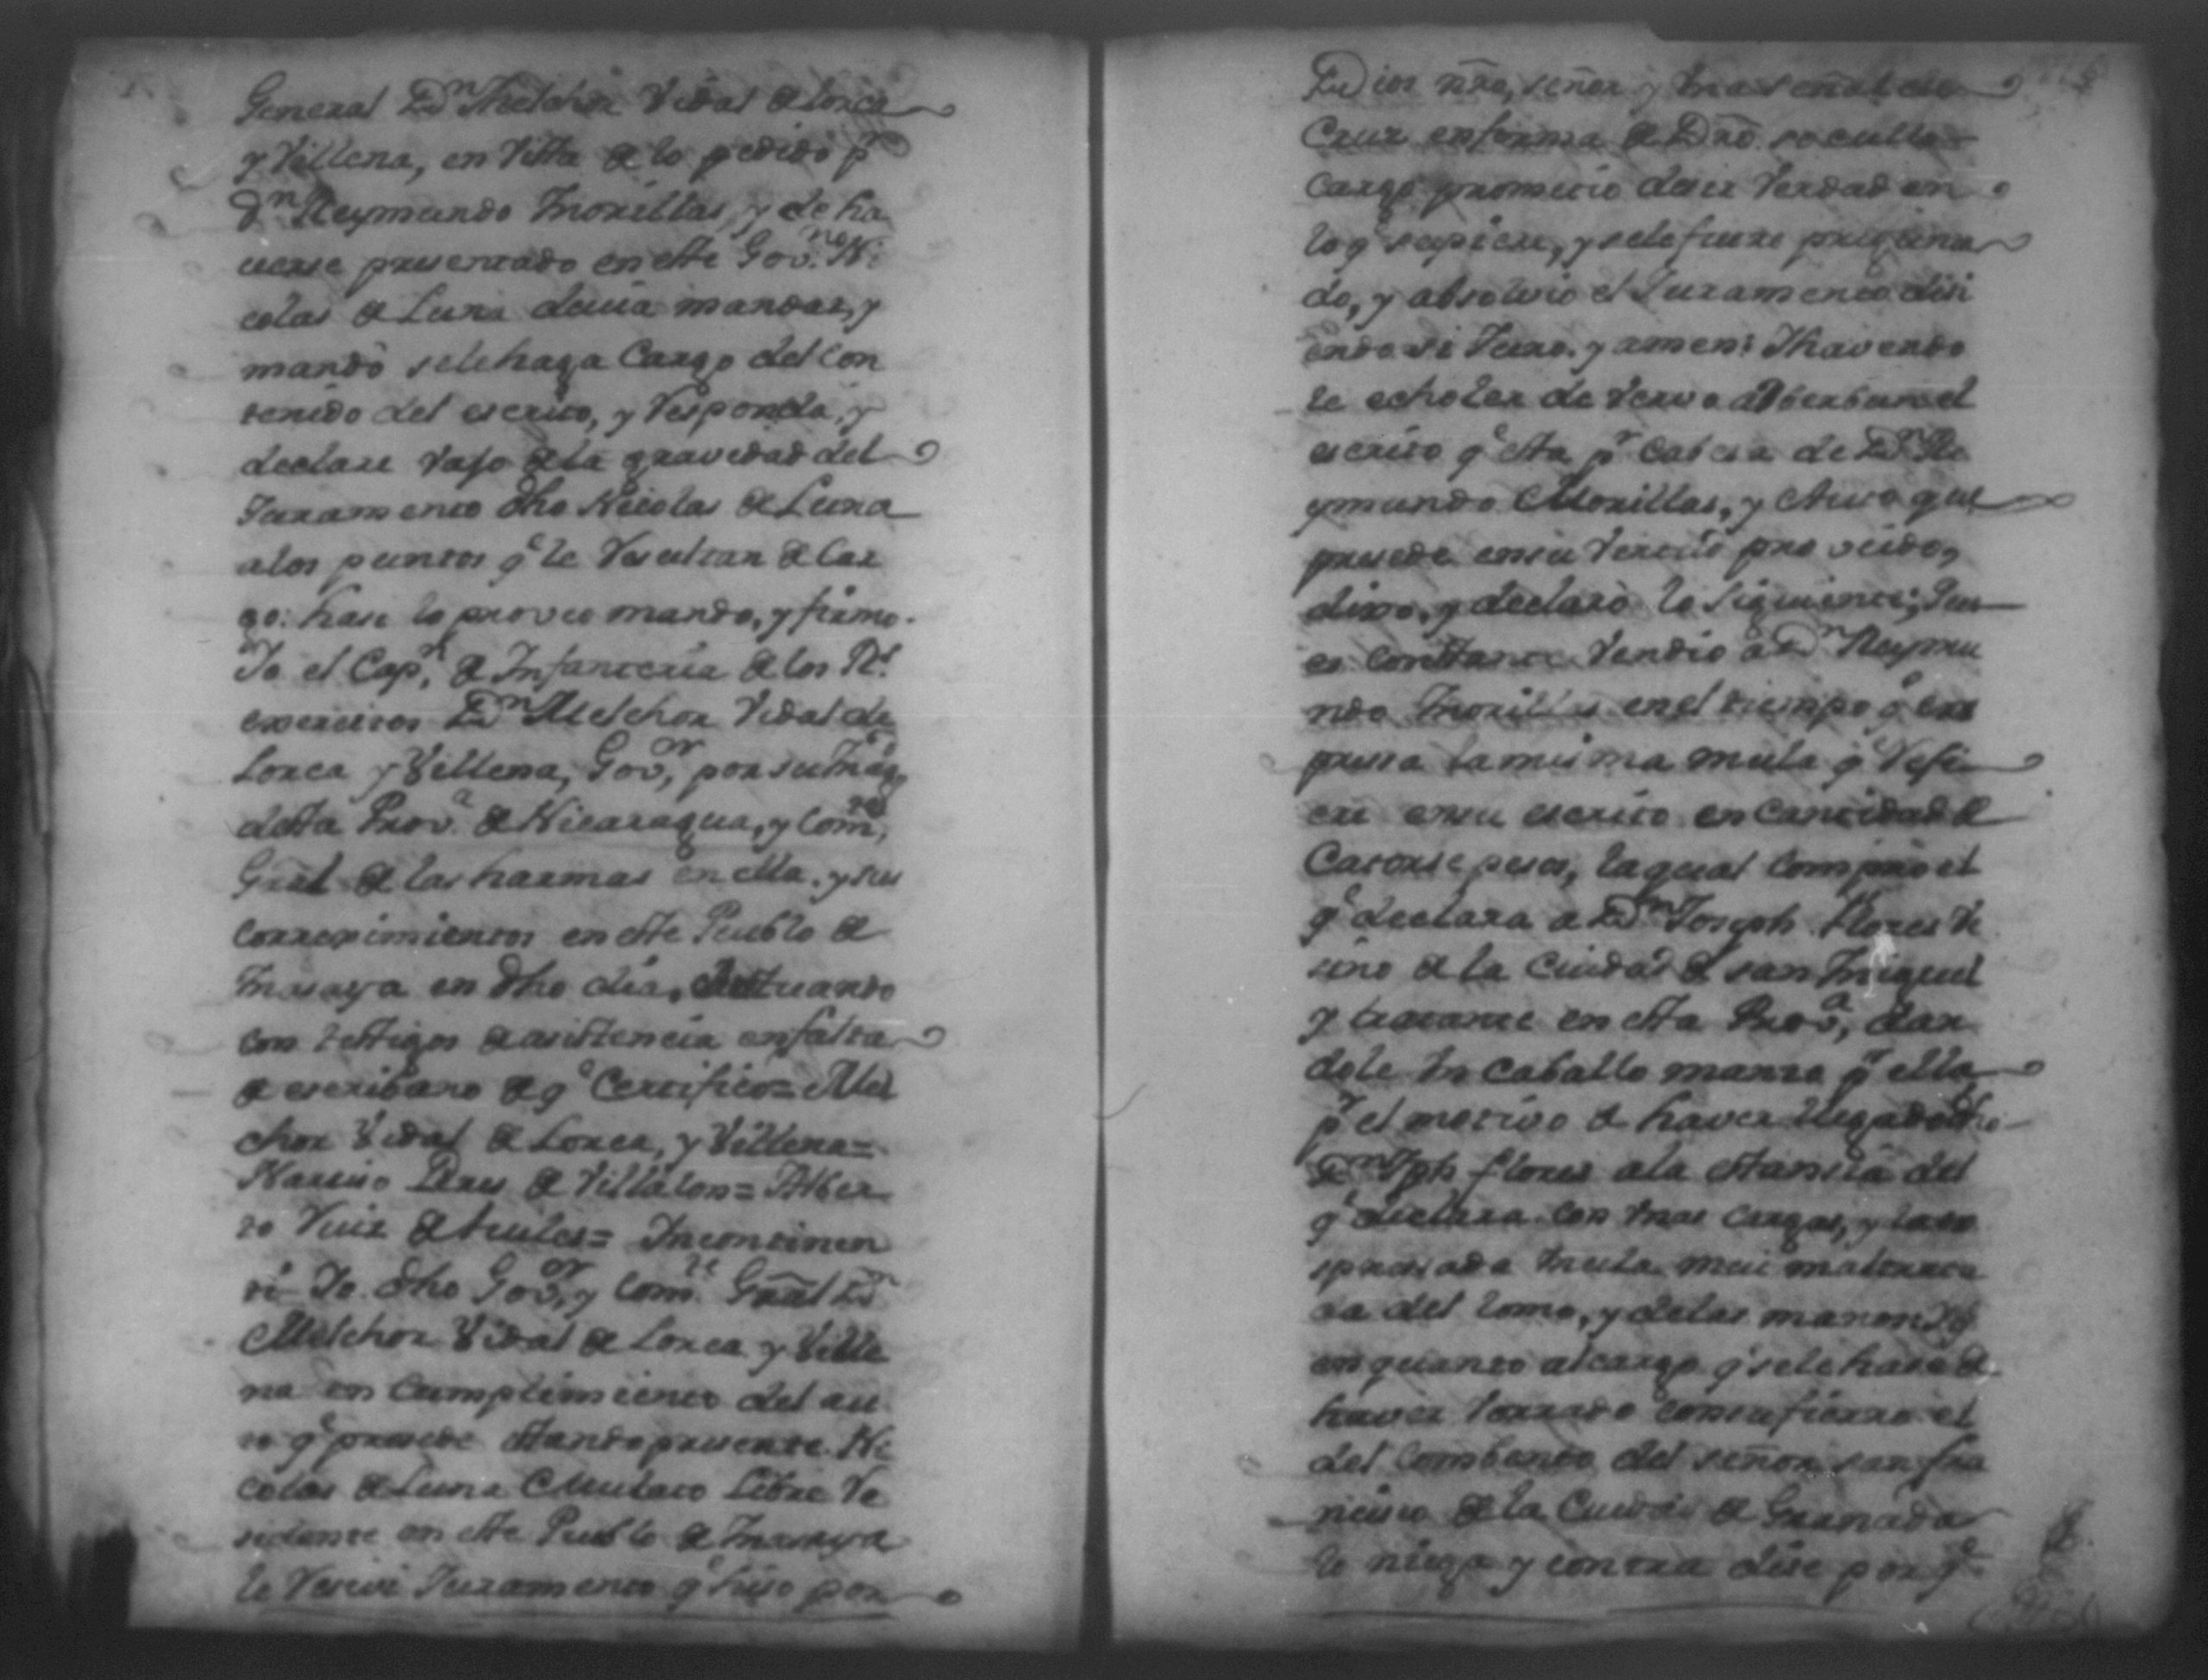 General Dn Melchor Vidal de Lorca
y Villena, en Vista de lo pedido pr
Dn Reymundo Morillas, y de ha
verse presentado en este Govno Ni
colas de Luna devia mandar, y
mandò sele haga Cargo del Con
tenido del escrito, y Responda, y
declare vajo de la gravedad del
Juramento dho Nicolas de Luna
alos puntos qe le Resultan de Car
go: hasi lo proveo mando, y firmo.
Yo el Capn de Infanteria de los Rs
exercitos Dn Melchor Vidal de
Lorca y Villena, Govor, por su Magd
desta Prova de Nicaragua, y Comte
Gral de las harmas en ella. y sus
corregimientos en este Pueblo de
Masaya en dho dia, Actuando
con testigos de asistencia en falta
de escribano de qe Certifico= Mel
chor Vidal de Lorca, y Villena=
Narciso Peres de Villalon= Alber
to Ruiz de = Yncontinen
ti Yo dho Govor, y Comte Gral Dn
Melchor Vidal de Lorca y Ville
na en Cumplimiento del au
to qe presede estando presente Ni
colas de Luna Mulato Libre Re
sidente en este Pueblo de Masaya
le Resivi Juramento qe hiso por
Dios nro, señor y una señal de
Cruz en forma de Dro. so cullo
Cargo prometio desir Verdad en
lo qe supiere, y sele fuere pregunta
do, y absolvio el Juramento disi
endo si Juro. y amen: Y havendo
le echo ler de Vervo ad berbum el
escrito qe esta pr Cabesa de Dn Re
ymundo Morillas, y Auto que
presede en su proveido,
dixo, y declarò lo siguiente; Que
es Constante Vendio à Dn Reymu
ndo Morillas en el tiempo qe ex
presa la misma mula qe Refi
ere en su escrito en Cantidad de
Catorse pesos, la qual Compro el
qe declara a Dn Joseph Flores Ve
sino de la Ciudad de San Miguel
y tratante en esta Prova, dan
dole Un Caballo manso pr ella
pr el motivo de haver llegado dho
Dn Jph flores ala estansia del
qe declara con unas Cargas, y la ex
presada Mula mui maltrata
da del lomo, y de las manos Y
en quanto al cargo qe sele hase de
haver borrado con su fierro el
del Combento del señor san fra
nsisco de la Ciudad de Granada
lo niega y contra dise por qe